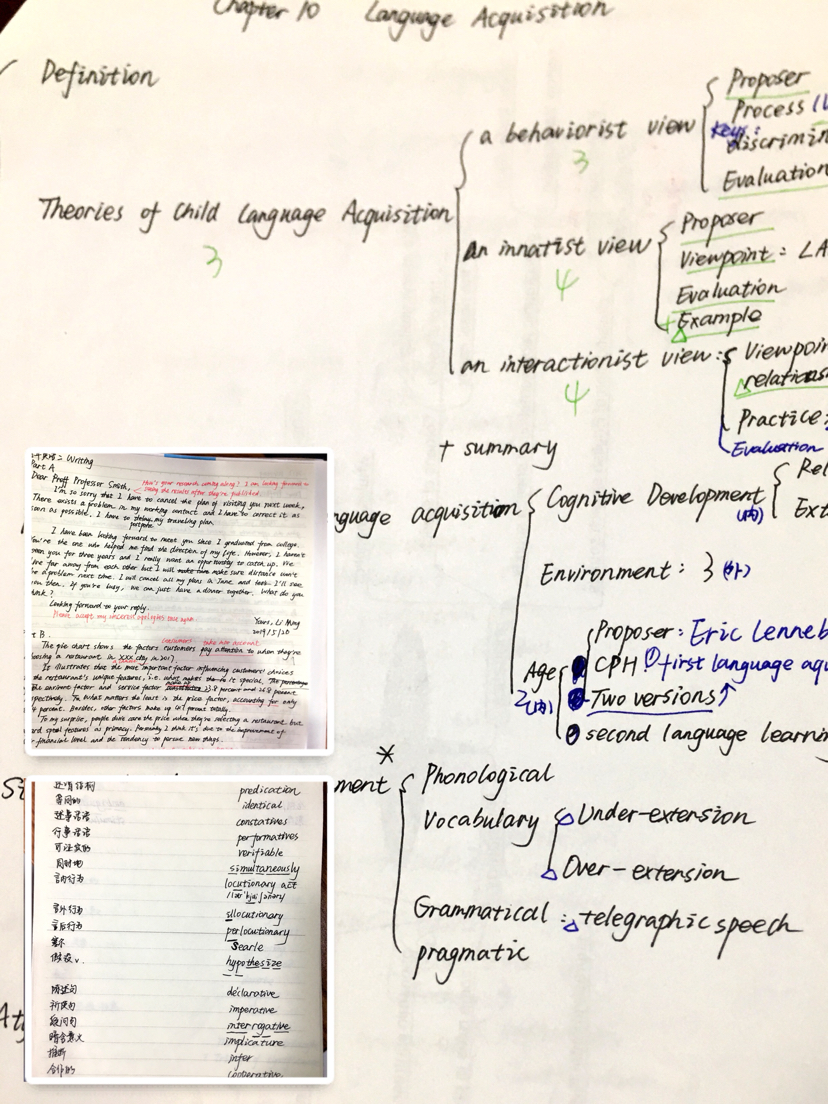 Chapter 10 Language Acquisition
Definition
Theories of Child Language Acquisition
3
a behaviorist view
3
Proposer
Process
keys:
discrimin
Evaluation
an innatist view
4
Proposer
Viewpoint : LA
Evaluation
+ Example
an interactionist view :
4
Viewpoin
relations
Practice :
Evaluation
+ summary
nguage acquisition
Cognitive Development
(内)
Rel
Ext
Environment : 3 (外)
Age
2 (内)
Proposer : Eric Lenneb
CPH ① first language aqu
Two versions ↑
second language learnin
*
ment
Phonological
Vocabulary
Under-extension
Over-extension
Grammatical : telegraphic speech
pragmatic
Writing
Part A
Dear Proff Professor Smith,
How's your research working along? I am looking forward to
seeing the results after they're published.
I'm so sorry that I have to cancel the plan of visiting you next week,
There exists a problem in my working contact and I have to correct it as
soon as possible. I have to delay my traveling plan.
postpone
I have been looking forward to meet you since I graduated from college.
You're the one who helped me find the direction of my life. However, I haven't
seen you for three years and I really want an opportunity to catch up. We
're far away from each other but I will make sure distance won't
be a problem next time. I will cancel all my plans in June, and I'll see
you then. If you're busy, we can just have a dinner together. What do you
think?
Looking forward to your reply.
Please accept my sincere apologies once again.
Yours, Li Ming
2019/5/20
t B
customers take into account
The pie chart shows the factors customers pay attention to when they're
oosing a restaurant in XXX city in 2017.
It illustrates that the most important factor influencing customers' choices
the restaurant's unique features, i.e. what makes it special. The
the environment factor and service factor 23.8 percent and 26.8 percent
spectively. To what matters the least is the price factor, accounting for only
percent. Besides, other factors make up percent totally.
To my surprise, people don't care the price when they're selecting a restaurant but
ard special features as primary. Personally I think it's due to the improvement of
financial level and the tendency to pursue new things.
述谓结构 predication
等同的 identical
述事话语 constatives
行事话语 performatives
可证实的 verifiable
同时地 simultaneously
言内行为 locutionary act
言外行为 illocutionary
言后行为 perlocutionary
塞尔 Searle
假设 v. hypothesize
陈述句 declarative
祈使句 imperative
疑问句 interrogative
暗含意义 implicature
推断 infer
合作的 cooperative